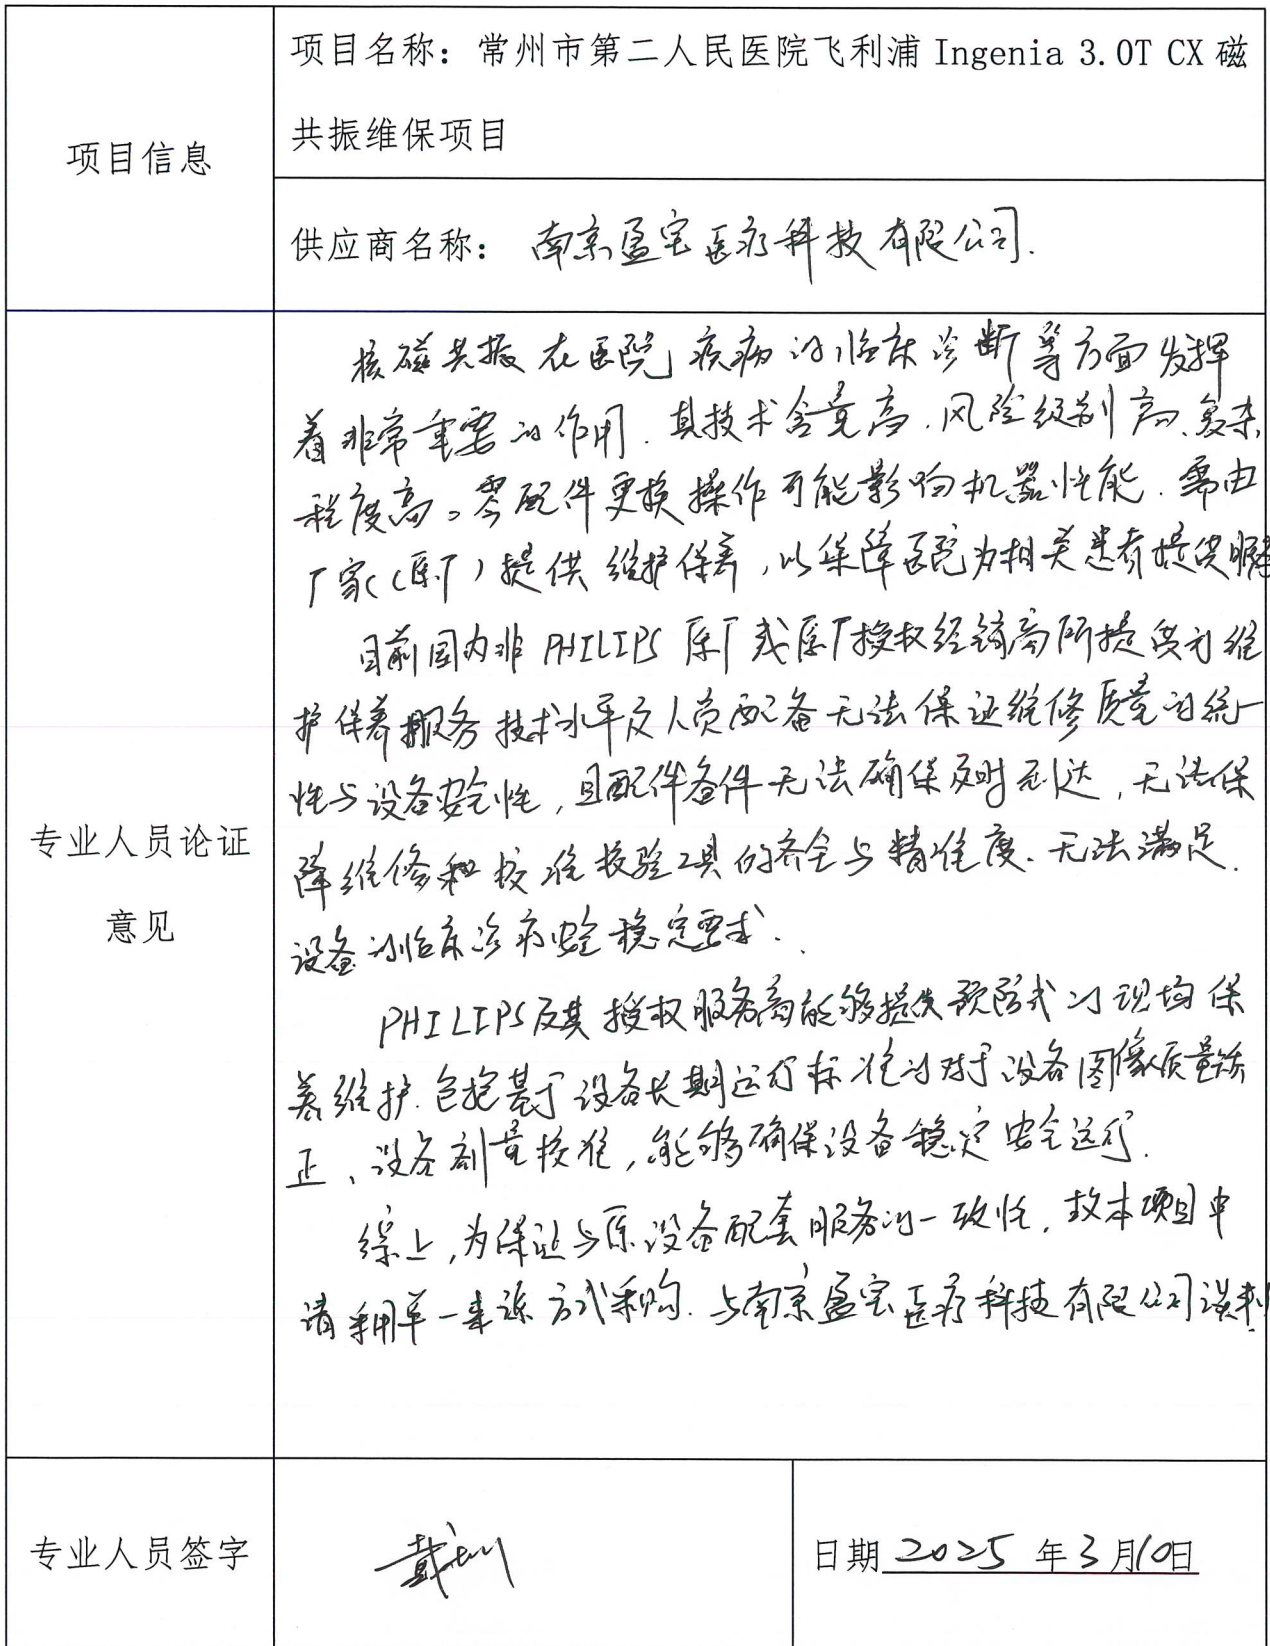 项目信息
项目名称：常州市第二人民医院飞利浦 Ingenia 3.0T CX 磁
共振维保项目
供应商名称： 南京盈宝医疗科技有限公司.
专业人员论证
意见
核磁共振在医院疾病的临床诊断等方面发挥
着非常重要的作用.其技术含量高.风险级别高、复杂
程度高。零配件更换操作可能影响机器性能.需由
厂家（原厂）提供维护保养,以保障医院为相关患者提供服务
目前国内非PHILIPS原厂或原厂授权经销商所提供的维
护保养服务技术水平及人员配备无法保证维修质量的统一
性与设备安全性,且配件备件无法确保及时到达,无法保
障维修和校准校验工具的齐全与精准度.无法满足.
设备的临床诊疗安全稳定要求.
PHILIPS及其授权服务商能够提供预防式的现场保
养维护.包括基于设备长期运行标准的对于设备图像质量矫
正、设备剂量校准,能够确保设备稳定安全运行.
综上,为保证与原设备配套服务的一致性.故本项目申
请利用单一来源方式采购.与南京盈宝医疗科技有限公司谈判
专业人员签字
日期 2025 年 3 月 10 日